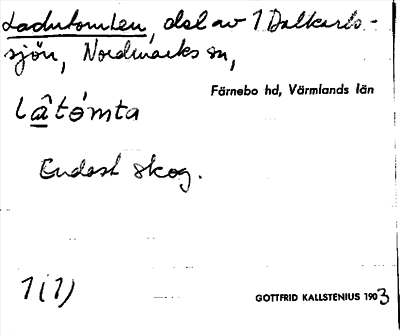 Ladutomten, del av 1 Dalkarls-
sjön, Nordmarks sn,
Färnebo hd, Värmlands län
lâtómta
Endast skog.
1(1)
GOTTFRID KALLSTENIUS 1903